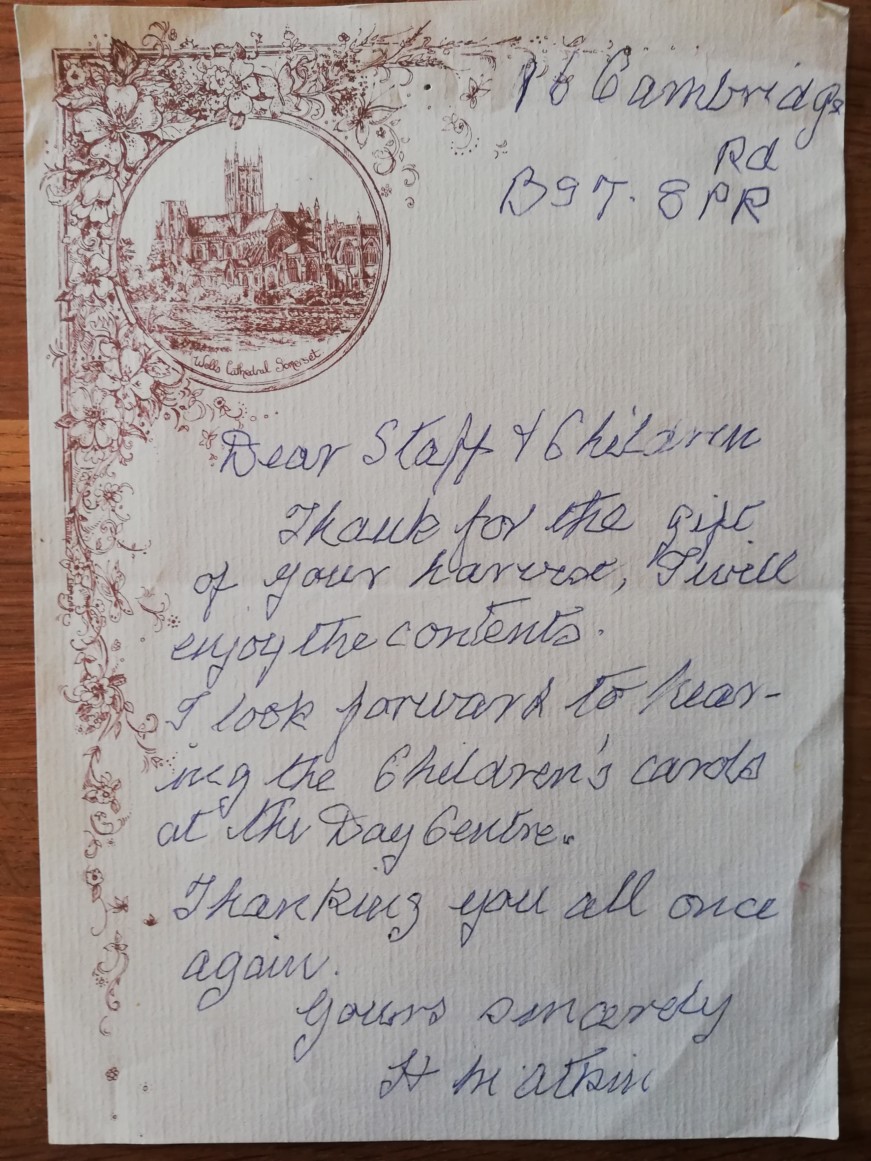 16 Cambridge
Rd
B97. 8PR
Wells Cathedral Somerset
Dear Staff & Children
Thank for the gift
of your harvest, I will
enjoy the contents.
I look forward to hear-
ing the Children's cards
at the Day Centre.
Thanking you all once
again.
Yours sincerely
H